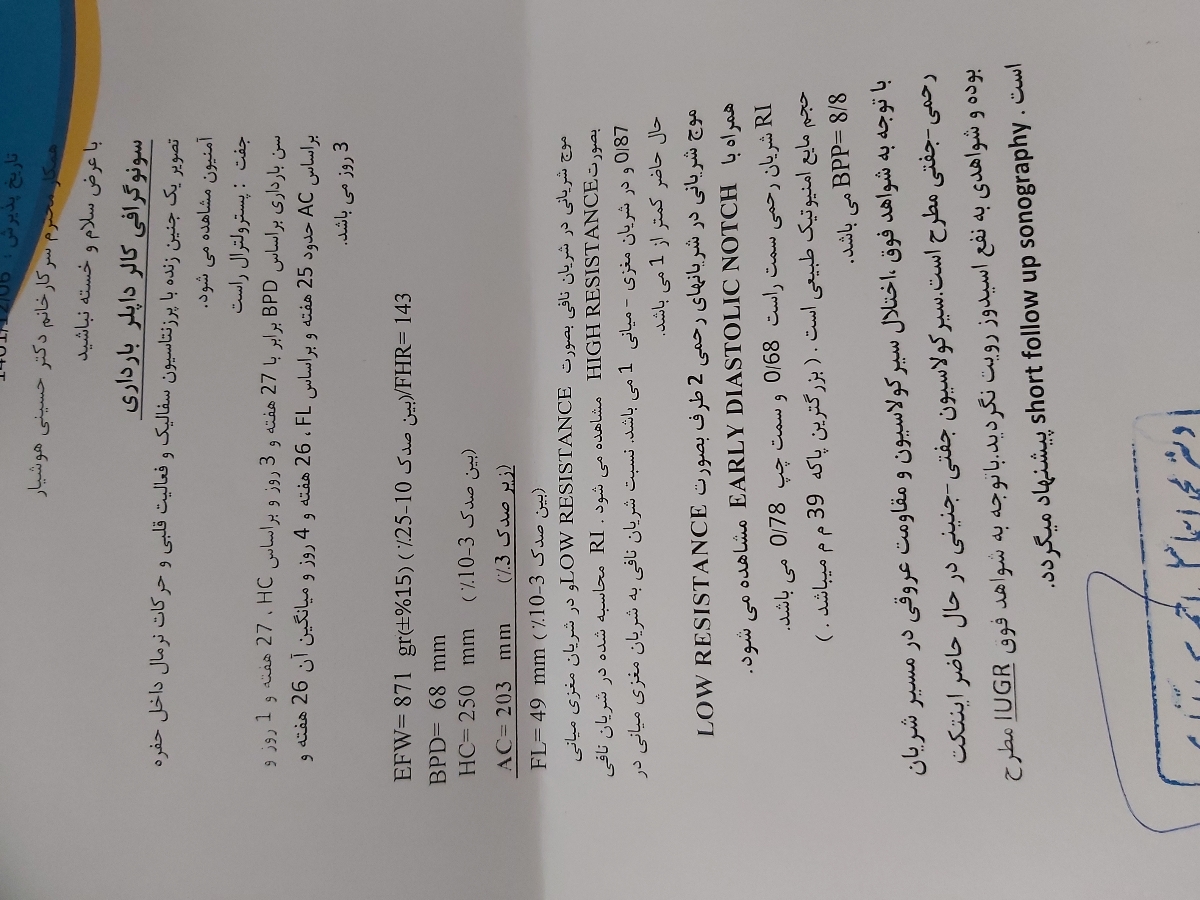 تاریخ پذیرش : 1401/12/06
همکار محترم سرکارخانم دکتر حسینی هوشیار
با عرض سلام و خسته نباشید
سونوگرافی کالر داپلر بارداری
تصویر یک جنین زنده با پرزنتاسیون سفالیک و فعالیت قلبی و حرکات نرمال داخل حفره
آمنیون مشاهده می شود.
جفت : پوسترولترال راست
سن بارداری براساس BPD برابر با 27 هفته و 3 روز و براساس HC ، 27 هفته و 1 روز و
براساس AC حدود 25 هفته و براساس FL ، 26 هفته و 4 روز و میانگین آن 26 هفته و
3 روز می باشد.
EFW= 871 gr(±%15) (بین صدک 10-25٪)/FHR= 143
BPD= 68 mm
HC= 250 mm (بین صدک 3-10٪)
AC= 203 mm (زیر صدک 3٪)
FL= 49 mm (بین صدک 3-10٪)
موج شریانی در شریان نافی بصورت LOW RESISTANCE و در شریان مغزی میانی
بصورت HIGH RESISTANCE مشاهده می شود . RI محاسبه شده در شریان نافی
0/87 و در شریان مغزی - میانی 1 می باشد. نسبت شریان نافی به شریان مغزی میانی در
حال حاضر کمتر از 1 می باشد.
موج شریانی در شریانهای رحمی 2 طرف بصورت LOW RESISTANCE
همراه با EARLY DIASTOLIC NOTCH مشاهده می شود.
RI شریان رحمی سمت راست 0/68 و سمت چپ 0/78 می باشد.
حجم مایع امنیوتیک طبیعی است . ( بزرگترین پاکه 39 م م میباشد . )
BPP= 8/8 می باشد.
با توجه به شواهد فوق ،اختلال سیرکولاسیون و مقاومت عروقی در مسیر شریان
رحمی-جفتی مطرح است.سیرکولاسیون جفتی-جنینی در حال حاضر اینتکت
بوده و شواهدی به نفع اسیدوز رویت نگردید.باتوجه به شواهد فوق IUGR مطرح
است . short follow up sonography پیشنهاد میگردد.